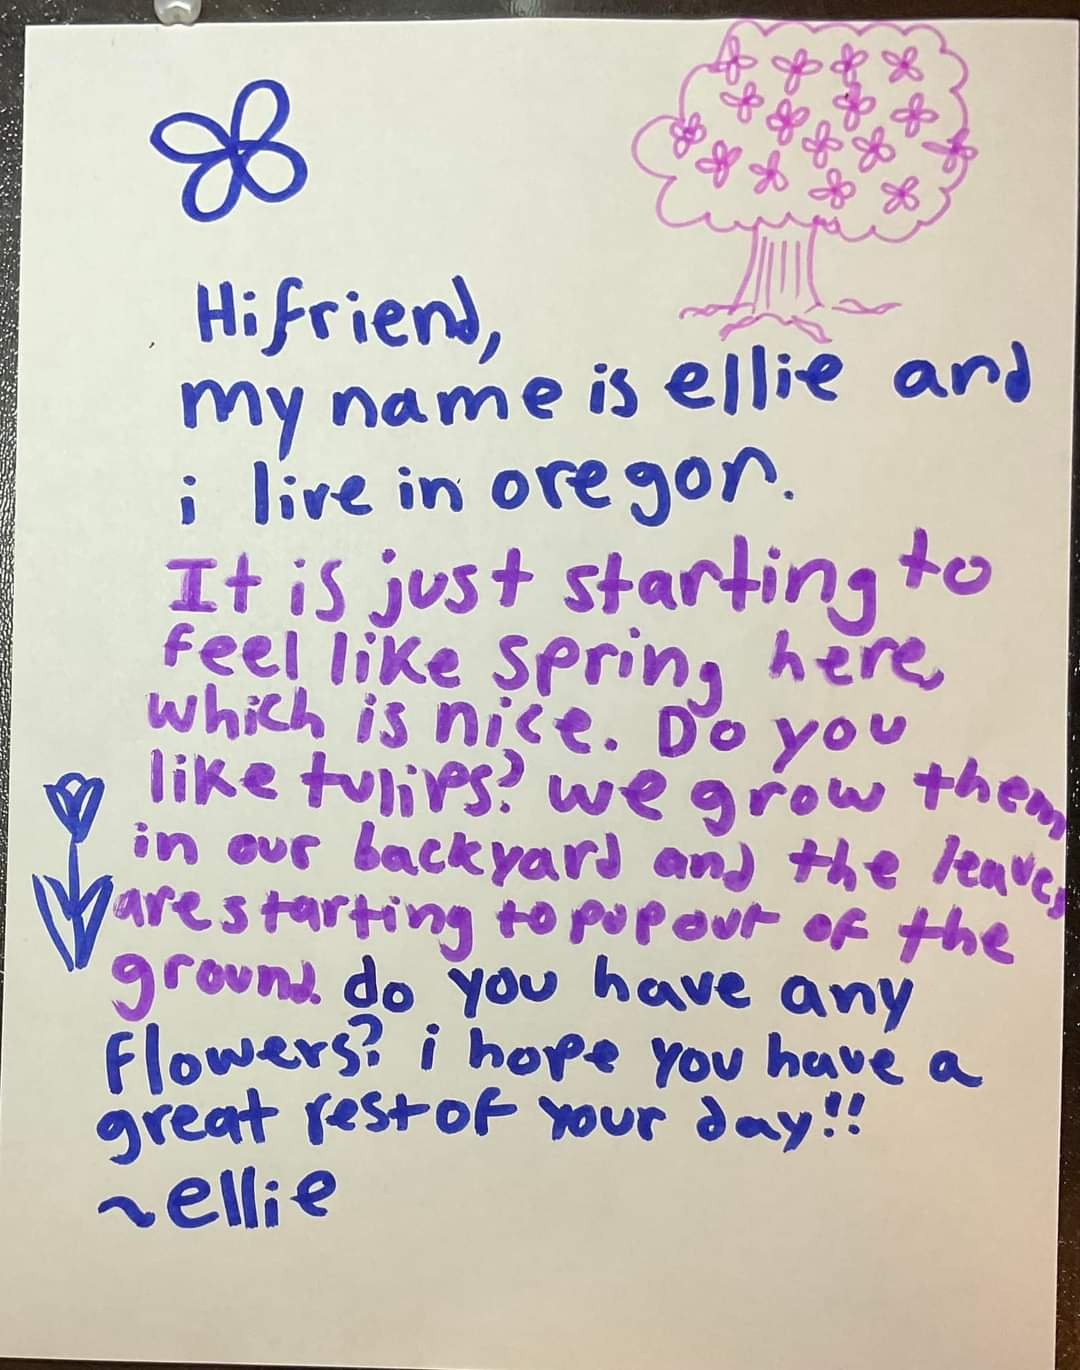 Hi friend,
my name is ellie and
i live in oregon.
It is just starting to
feel like spring here,
which is nice. Do you
like tulips? we grow them
in our backyard and the leaves
are starting to pop out of the
ground. do you have any
flowers? i hope you have a
great rest of your day!!
~ellie